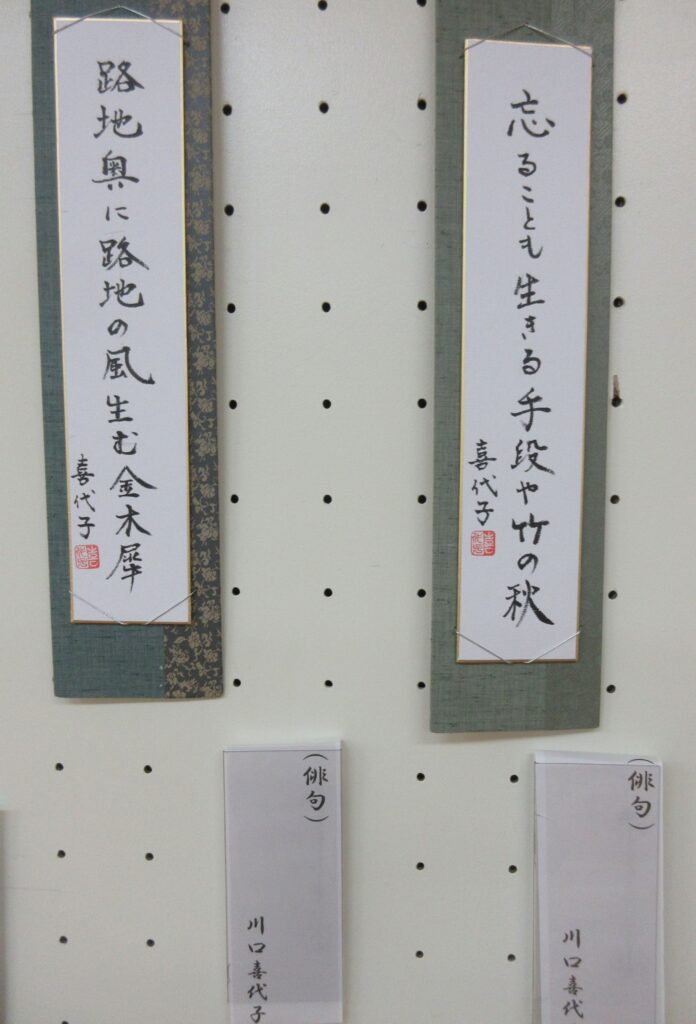 忘ることも生きる手段や竹の秋
喜代子
路地奥に路地の風生む金木犀
喜代子
(俳句)
川口喜代
(俳句)
川口喜代子